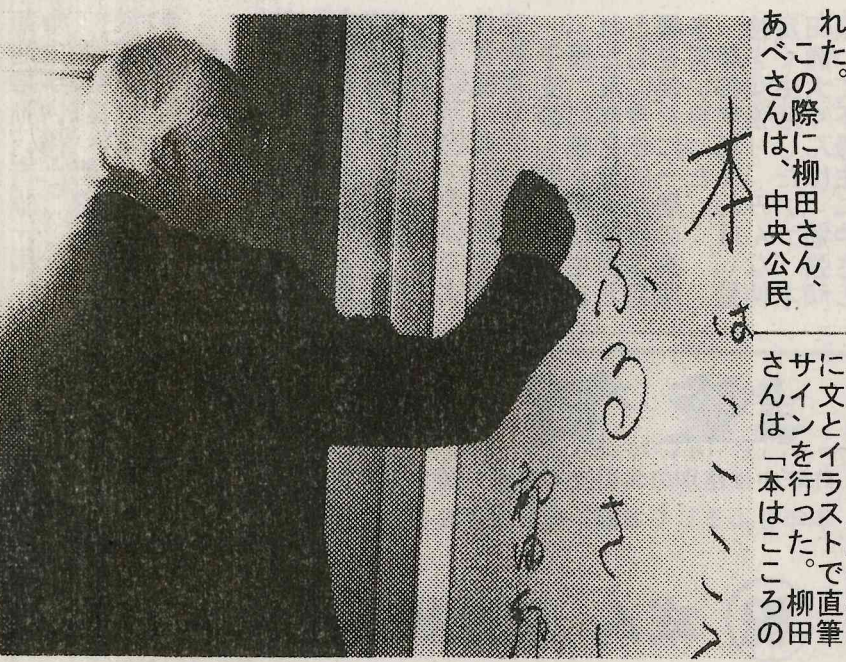 れた。
この際に柳田さん、
あべさんは、中央公民
に文とイラストで直筆
サインを行った。柳田
さんは「本はこころの
本はここ
ふるさ